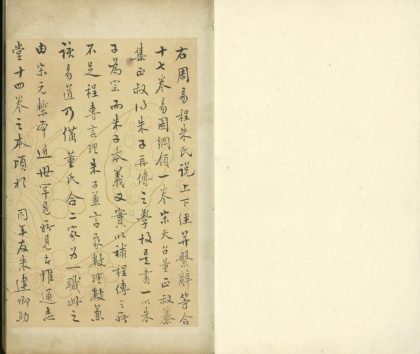 右周易程朱氏說上下經并繫辭等合
十七卷易圖綱領一卷宋天台董正叔纂
集正叔以朱子再傳之學故是書一以朱
子為宗而朱子本義又實以補程傳之所
不足程專言理朱子兼言象數理數兼
該易道乃備董氏合二家為一職此之
由宋元槧本近世罕見所見者惟通志
堂十四卷之本頃於 同年友朱建卿助